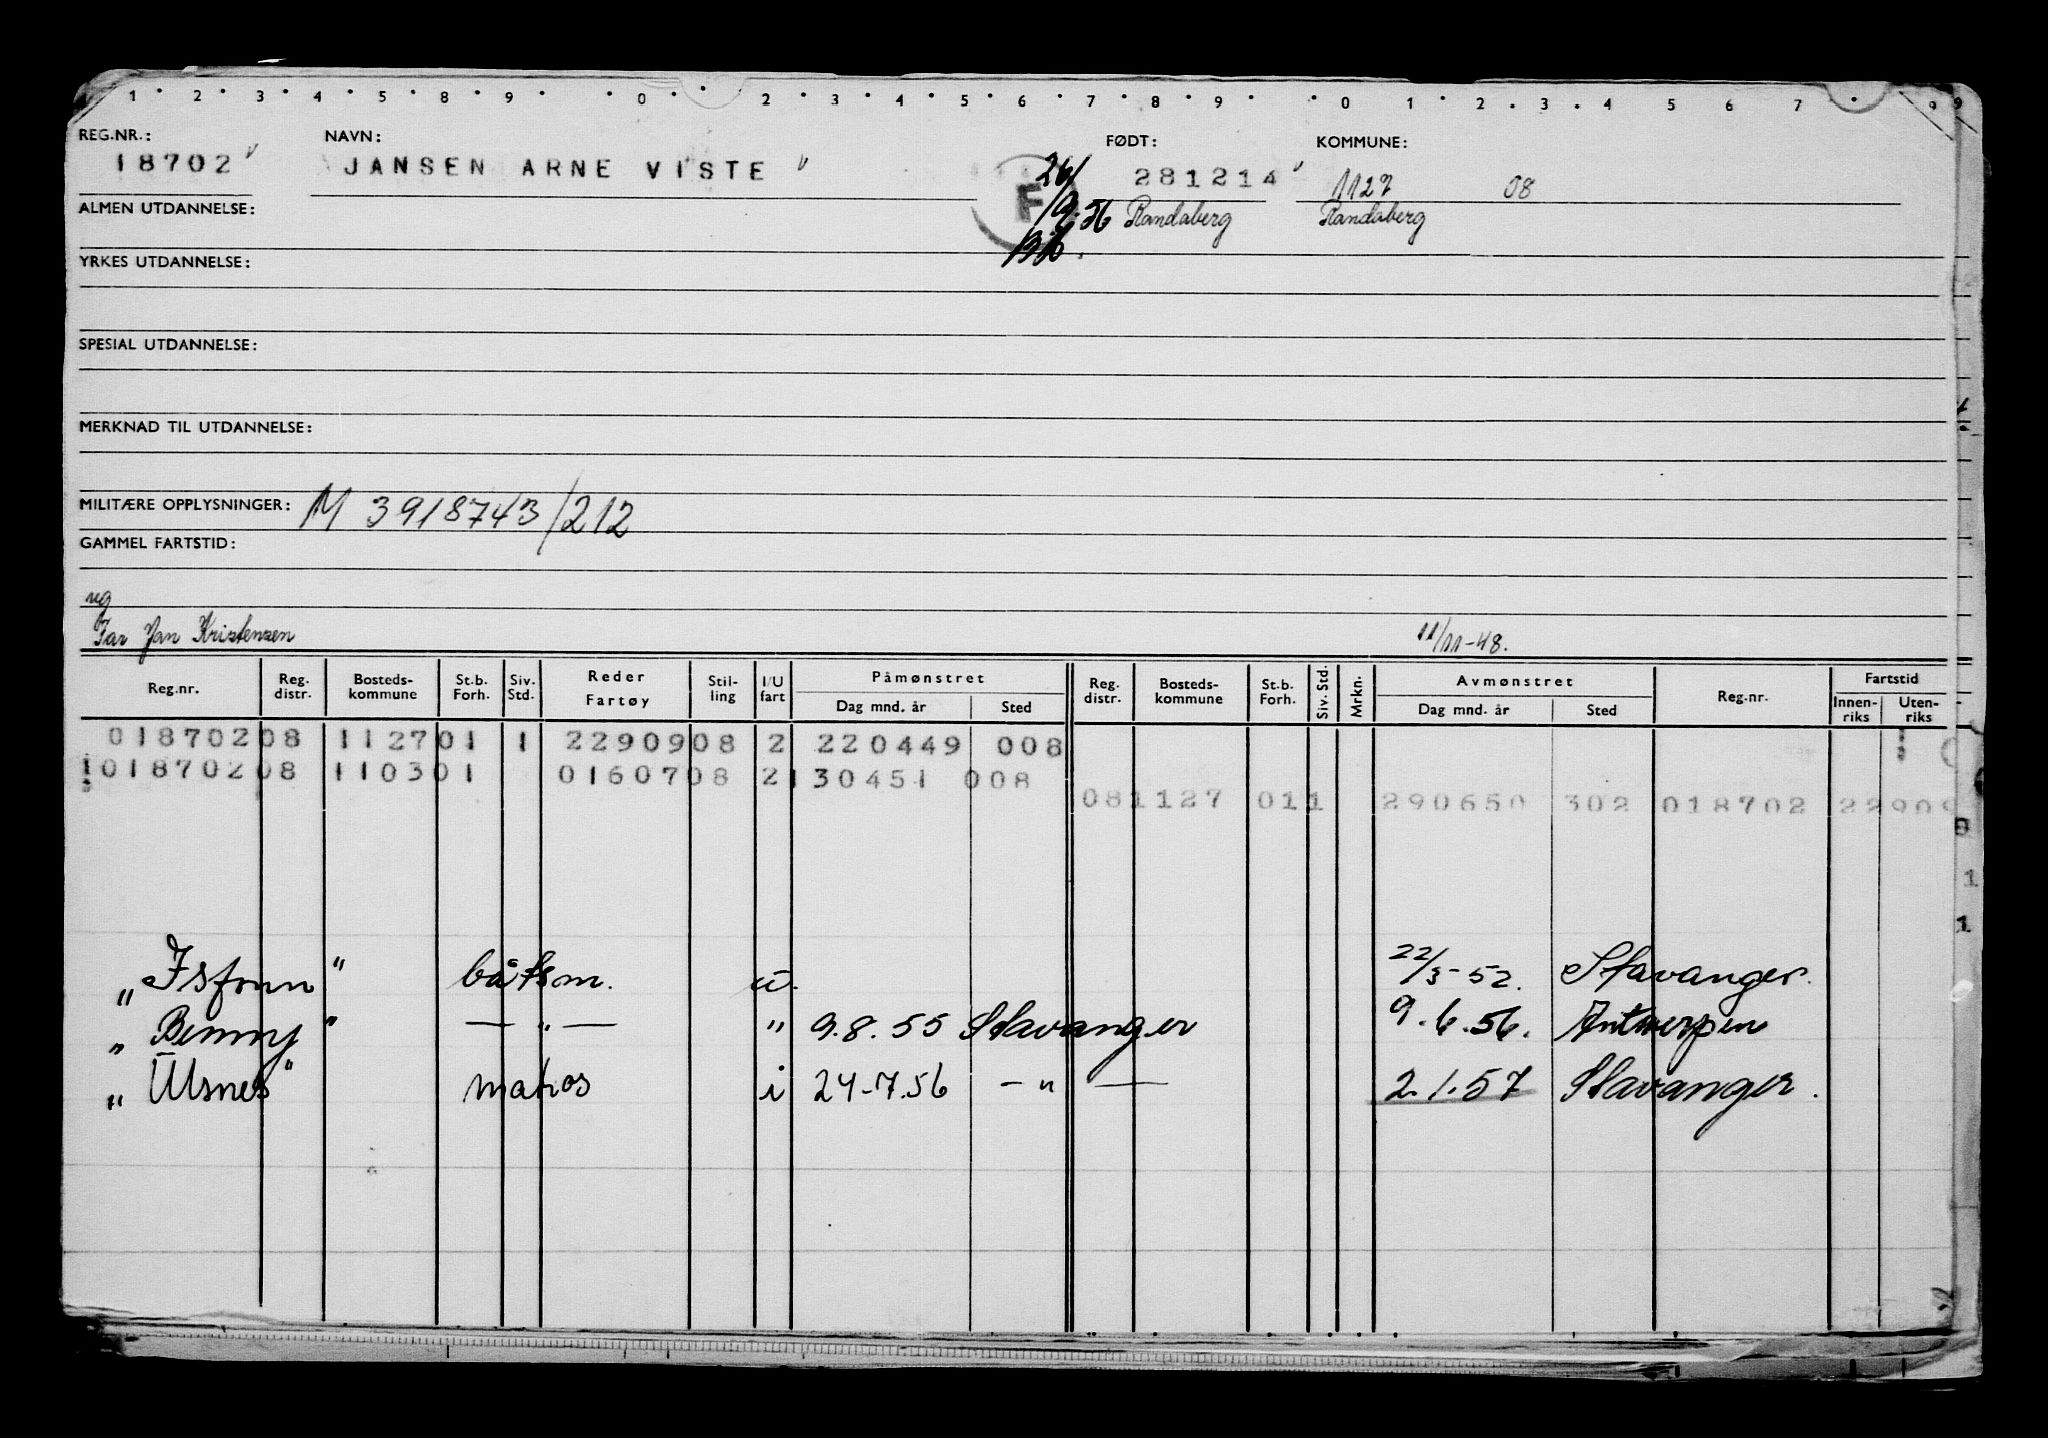 1 2 3 4 5 8 9 0 2 3 4 5 6 7 8 9 0 1 2 3 4 5 6 7 9 9
REG.NR.: NAVN: FØDT: KOMMUNE:
18702 JANSEN ARNE VISTE 281214 1127 08
F 26/9.56 Randaberg Randaberg
ALMEN UTDANNELSE:
YRKES UTDANNELSE:
SPESIAL UTDANNELSE:
MERKNAD TIL UTDANNELSE:
MILITÆRE OPPLYSNINGER: M 3918743/212
GAMMEL FARTSTID:
ug
Far Jan Kristensen 11/11-48.
Reg.nr. Reg. distr. Bosteds-kommune St.b. Forh. Siv. Std. Reder Fartøy Stil-ling I/U fart Påmønstret Dag mnd. år Sted Reg. distr. Bosteds-kommune St.b. Forh. Siv. Std. Mrkn. Avmønstret Dag mnd. år Sted Reg.nr. Fartstid Innen-riks Uten-riks
018702 08 1127 01 1 22909 08 2 220449 008
018702 08 1103 01 01607 08 2 130451 008
08 1127 01 1 290650 302 018702 22909
„Isfonn" båtsm. u. 22/3-52. Stavanger.
„Benny" — " — " 9.8.55 Stavanger 9.6.56. Antwerpen
„Ulsnes" matros i 24-7.56 — " — 2.1.57 Stavanger.